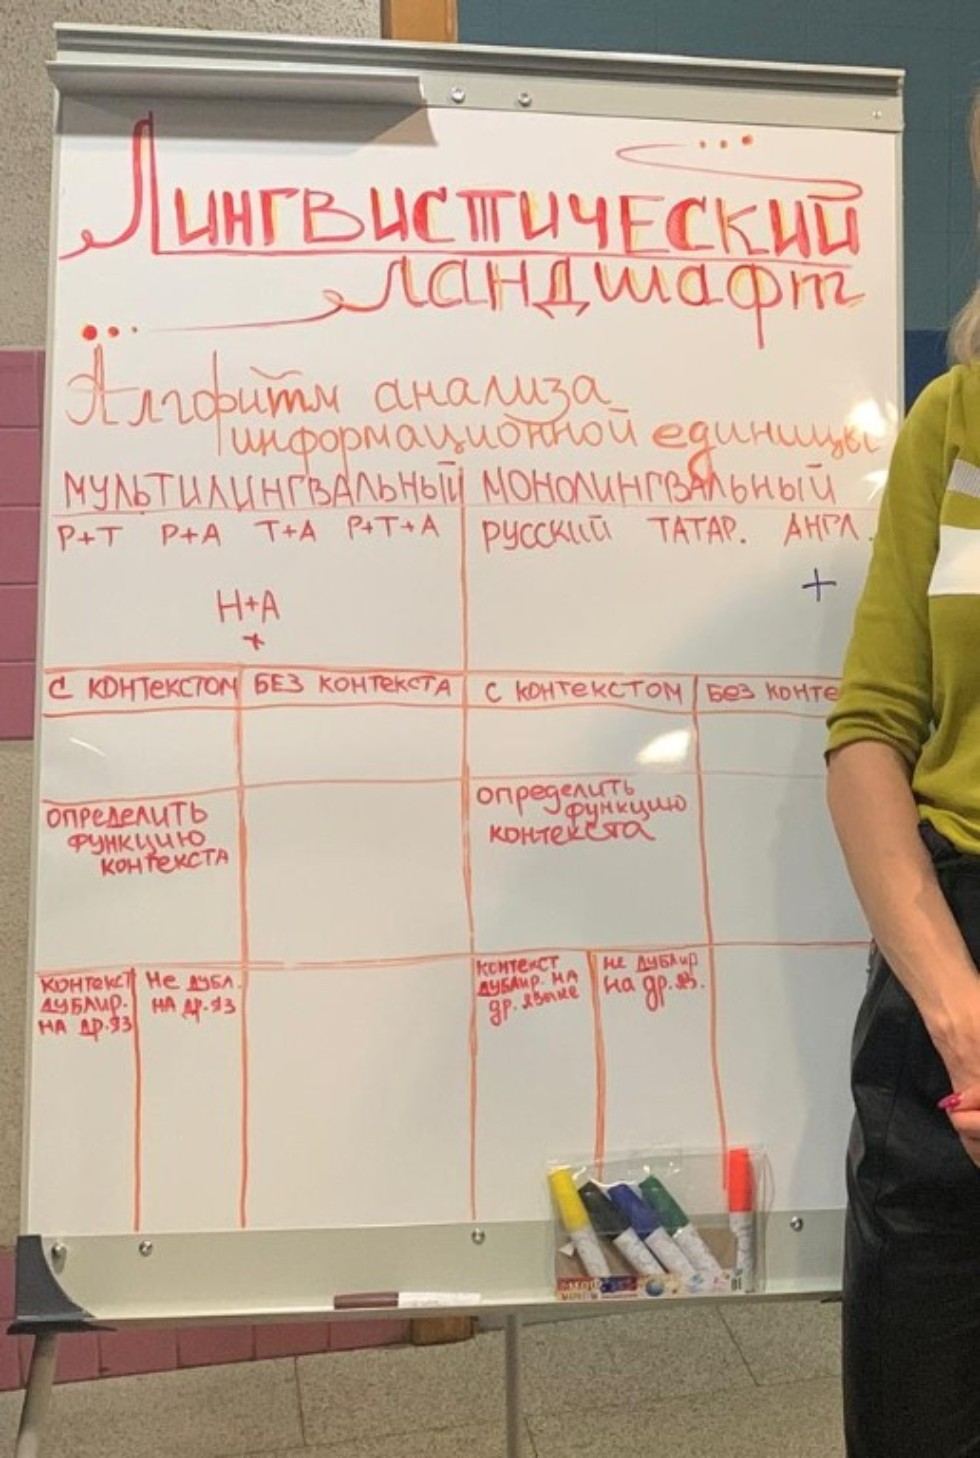 Лингвистический
ландшафт
Алгоритм анализа
информационной единицы
МУЛЬТИЛИНГВАЛЬНЫЙ МОНОЛИНГВАЛЬНЫЙ
Р+Т Р+А Т+А Р+Т+А РУССКИЙ ТАТАР. АНГЛ.
+
Н+А
+
С КОНТЕКСТОМ БЕЗ КОНТЕКСТА С КОНТЕКСТОМ БЕЗ КОНТЕ
ОПРЕДЕЛИТЬ
ФУНКЦИЮ
КОНТЕКСТА
определить
функцию
контекста
КОНТЕКСТ
ДУБЛИР.
НА ДР.ЯЗ
Не дубл.
НА др.яз
контекст
дублир. на
др. языке
не дублир
на др. яз.